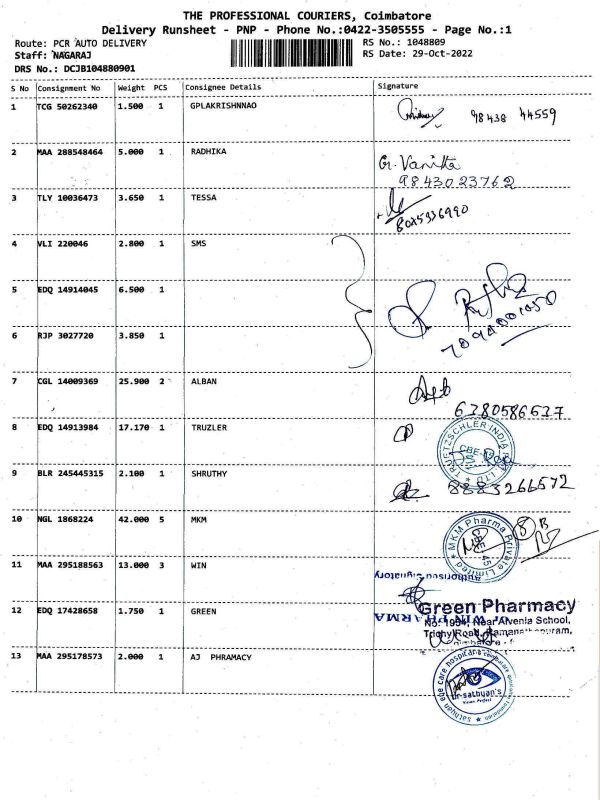 THE PROFESSIONAL COURIERS, Coimbatore
Delivery Runsheet - PNP - Phone No.:0422-3505555 - Page No.:1
Route: PCR AUTO DELIVERY
RS No.: 1048809
Staff: NAGARAJ
RS Date: 29-Oct-2022
DRS No.: DCJB104880901
S No Consignment No Weight PCS Consignee Details Signature
1 TCG 50262340 1.500 1 GPLAKRISHNNAO 98438 44559
2 MAA 288548464 5.000 1 RADHIKA G. Vanitha
9843023762
3 TLY 10036473 3.650 1 TESSA
4 VLI 220046 2.800 1 SMS
5 EDQ 14914045 6.500 1
6 RJP 3027720 3.850 1
7 CGL 14009369 25.900 2 ALBAN
6380586537
8 EDQ 14913984 17.170 1 TRUZLER TRUETZSCHLER INDIA
9 BLR 245445315 2.100 1 SHRUTHY 8883266572
10 NGL 1868224 42.000 5 MKM MKM Pharma Private Limited
11 MAA 295188563 13.000 3 WIN Authorised Signatory
12 EDQ 17428658 1.750 1 GREEN Green Pharmacy
Near Alvenia School,
Trichy Road,
13 MAA 295178573 2.000 1 AJ PHRAMACY sathyan eye care hospital
dr sathyan's